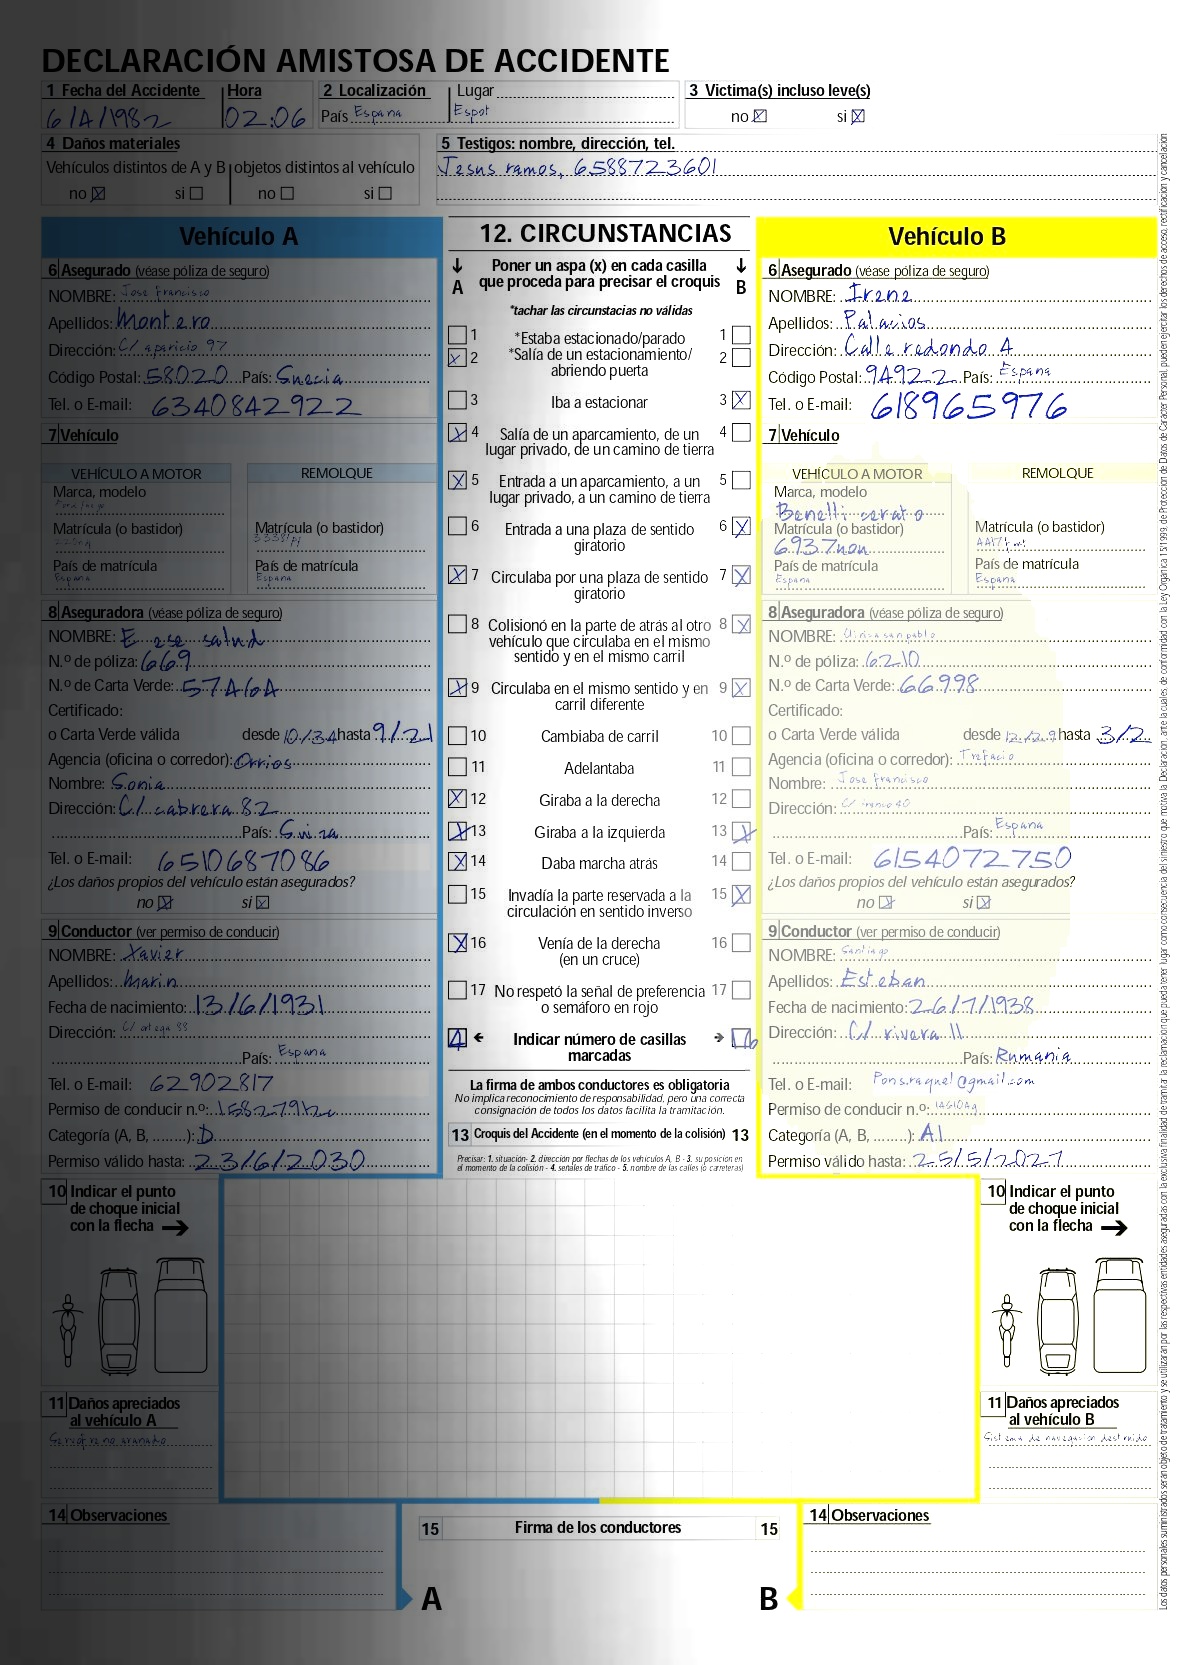 DECLARACIÓN AMISTOSA DE ACCIDENTE
1 Fecha del Accidente Hora 2 Localización Lugar 3 Victima(s) incluso leve(s)
6/4/1982 02:06 País Espana Espot no si
4 Daños materiales 5 Testigos: nombre, dirección, tel.
Vehículos distintos de A y B objetos distintos al vehículo Jesus ramos, 6588723601
no si no si
Vehículo A
6 Asegurado (véase póliza de seguro)
NOMBRE: Jose Francisco
Apellidos: Montero
Dirección: C/ aparicio 97
Código Postal: 58020 País: Grecia
Tel. o E-mail: 6340842922
7 Vehículo
VEHÍCULO A MOTOR REMOLQUE
Marca, modelo
Matrícula (o bastidor) Matrícula (o bastidor)
País de matrícula País de matrícula
Espana Espana
8 Aseguradora (véase póliza de seguro)
NOMBRE: E ese salud
N.º de póliza: 669
N.º de Carta Verde: 57464
Certificado:
o Carta Verde válida desde 10/34 hasta 9/21
Agencia (oficina o corredor): Orrios
Nombre: Sonia
Dirección: C/ cabrera 82
País: Suiza
Tel. o E-mail: 6510687086
¿Los daños propios del vehículo están asegurados?
no si
9 Conductor (ver permiso de conducir)
NOMBRE: Xavier
Apellidos: Marin
Fecha de nacimiento: 13/6/1931
Dirección: C/ ortega 88
País: Espana
Tel. o E-mail: 62902817
Permiso de conducir n.º:
Categoría (A, B, ........): D
Permiso válido hasta: 23/6/2030
12. CIRCUNSTANCIAS
Poner un aspa (x) en cada casilla
que proceda para precisar el croquis
A B
*tachar las circunstacias no válidas
1 *Estaba estacionado/parado 1
2 *Salía de un estacionamiento/ 2
abriendo puerta
3 Iba a estacionar 3
4 Salía de un aparcamiento, de un 4
lugar privado, de un camino de tierra
5 Entrada a un aparcamiento, a un 5
lugar privado, a un camino de tierra
6 Entrada a una plaza de sentido 6
giratorio
7 Circulaba por una plaza de sentido 7
giratorio
8 Colisionó en la parte de atrás al otro 8
vehículo que circulaba en el mismo
sentido y en el mismo carril
9 Circulaba en el mismo sentido y en 9
carril diferente
10 Cambiaba de carril 10
11 Adelantaba 11
12 Giraba a la derecha 12
13 Giraba a la izquierda 13
14 Daba marcha atrás 14
15 Invadía la parte reservada a la 15
circulación en sentido inverso
16 Venía de la derecha 16
(en un cruce)
17 No respetó la señal de preferencia 17
o semáforo en rojo
4 Indicar número de casillas 16
marcadas
La firma de ambos conductores es obligatoria
No implica reconocimiento de responsabilidad, pero una correcta
consignación de todos los datos facilita la tramitación.
13 Croquis del Accidente (en el momento de la colisión) 13
Precisar: 1. situación- 2. dirección por flechas de los vehículos A, B - 3. su posición en
el momento de la colisión - 4. señales de tráfico - 5. nombre de las calles (o carreteras)
Vehículo B
6 Asegurado (véase póliza de seguro)
NOMBRE: Irene
Apellidos: Palacios
Dirección: Calle redondo 4
Código Postal: 94922 País: Espana
Tel. o E-mail: 618965976
7 Vehículo
VEHÍCULO A MOTOR REMOLQUE
Marca, modelo
Benelli cerato
Matrícula (o bastidor) Matrícula (o bastidor)
6937non
País de matrícula País de matrícula
Espana Espana
8 Aseguradora (véase póliza de seguro)
NOMBRE: Clinica san pablo
N.º de póliza: 6210
N.º de Carta Verde: 66998
Certificado:
o Carta Verde válida desde 12/29 hasta 3/2
Agencia (oficina o corredor): Trefacio
Nombre: Jose Francisco
Dirección: C/ franco 40
País: Espana
Tel. o E-mail: 6154072750
¿Los daños propios del vehículo están asegurados?
no si
9 Conductor (ver permiso de conducir)
NOMBRE: Santiago
Apellidos: Esteban
Fecha de nacimiento: 26/7/1938
Dirección: C/ rivera 11
País: Rumania
Tel. o E-mail: Pons.raquel@gmail.com
Permiso de conducir n.º:
Categoría (A, B, ........): A1
Permiso válido hasta: 25/5/2027
10 Indicar el punto
de choque inicial
con la flecha
11 Daños apreciados
al vehículo A
10 Indicar el punto
de choque inicial
con la flecha
11 Daños apreciados
al vehículo B
Sistema de navegacion destruido
14 Observaciones
15 Firma de los conductores 15
A B
14 Observaciones
Los datos personales suministrados seran objeto de tratamiento y se utilizaran por las respectivas entidades aseguradas con la exclusiva finalidad de tramitar la reclamación que pueda tener lugar como consecuencia del siniestro que motiva la Declaración, ante la cuales, de conformidad con la Ley Organica 15/1999 de Proteccion de Datos de Caracter Personal, pueden ejercitar los derechos de acceso, rectificación y cancelación